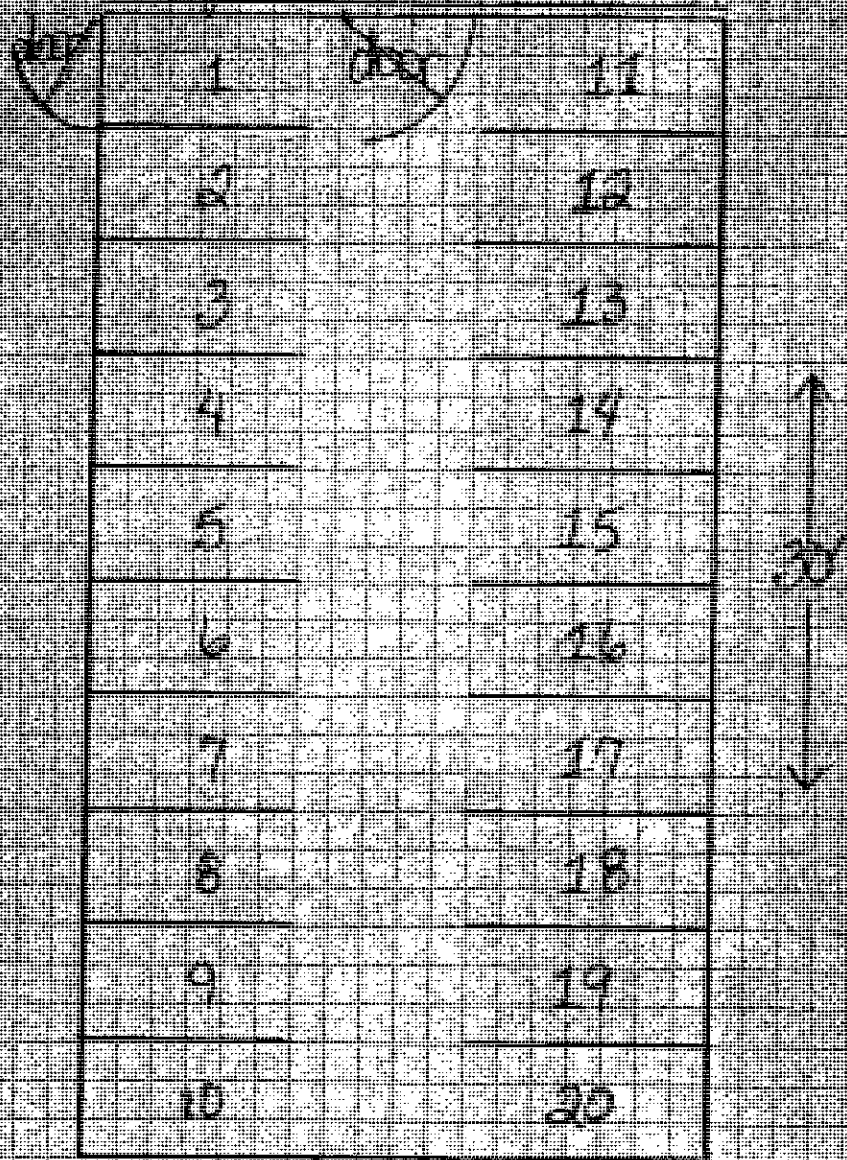 door 1 door 11
2 12
3 13
4 14
5 15
30'
6 16
7 17
8 18
9 19
10 20